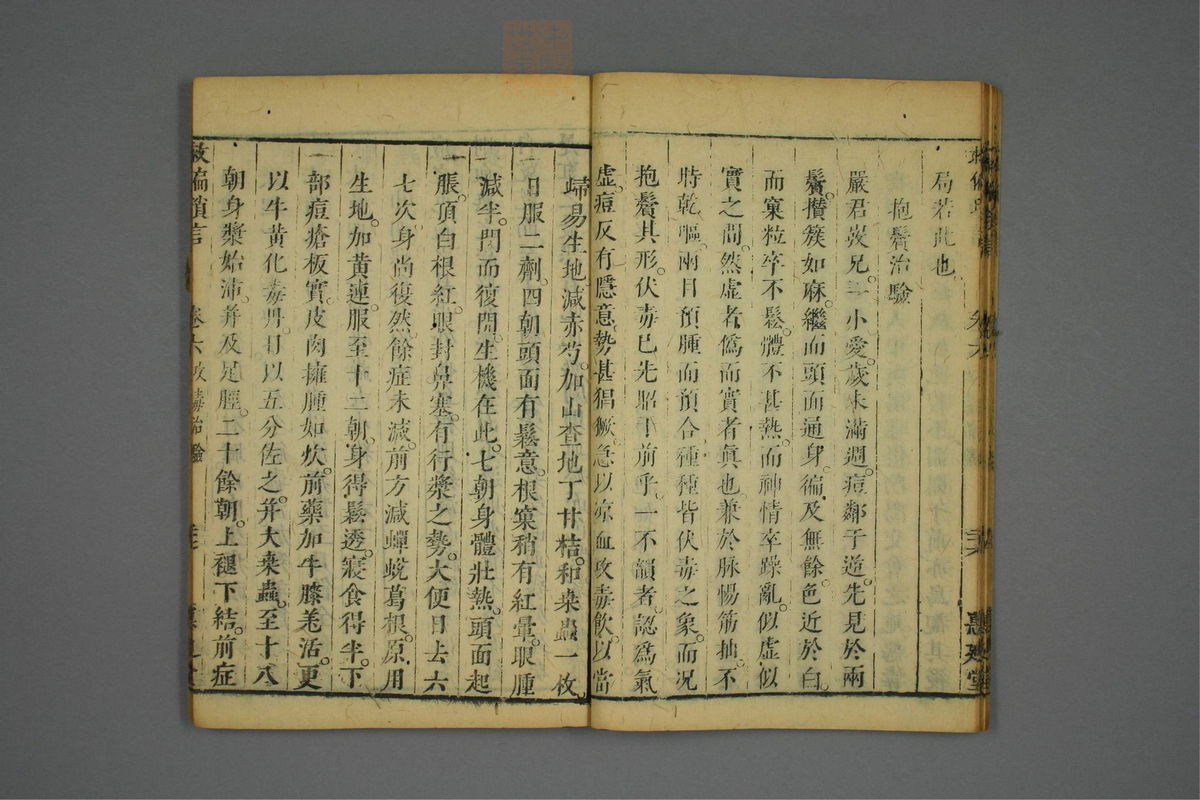 局若此也
抱鬢治驗
嚴君發兄二小愛歲未滿週痘鄰于遊先見於兩
鬢攅簇如麻繼面頭面通身徧及無餘色近於白
而窠粒卒不鬆體不甚熱而神情卒躁亂似虛似
實之間然虛者僞而實者眞也兼於脉惕筋抽不
時乾嘔兩目預腫而預合種種皆伏毒之象而况
抱鬢其形伏毒已先照于前乎一不韻者認爲氣
虛痘反有隱意勢甚猖獗急以凉血攻毒飲以當
歸易生地減赤芍加山查地丁甘桔和桒蟲一枚
日服二劑四朝頭面有鬆意根窠稍有紅暈眼腫
減半閉而復開生機在此七朝身體壯熱頭面起
脹頂白根紅眼封鼻塞有行漿之勢大便日去六
七次身尚復然餘症未減前方減蟬蛻葛根原用
生地加黃連服至十二朝身得鬆透寢食得半下
部痘瘡板實皮肉擁腫如炊前藥加牛膝羌活更
以牛黃化毒丹日以五分佐之并大桒蟲至十八
朝身漿始沛并及足脛二十餘朝上褪下結前症
救偏瑣言
卷六
攻毒治驗